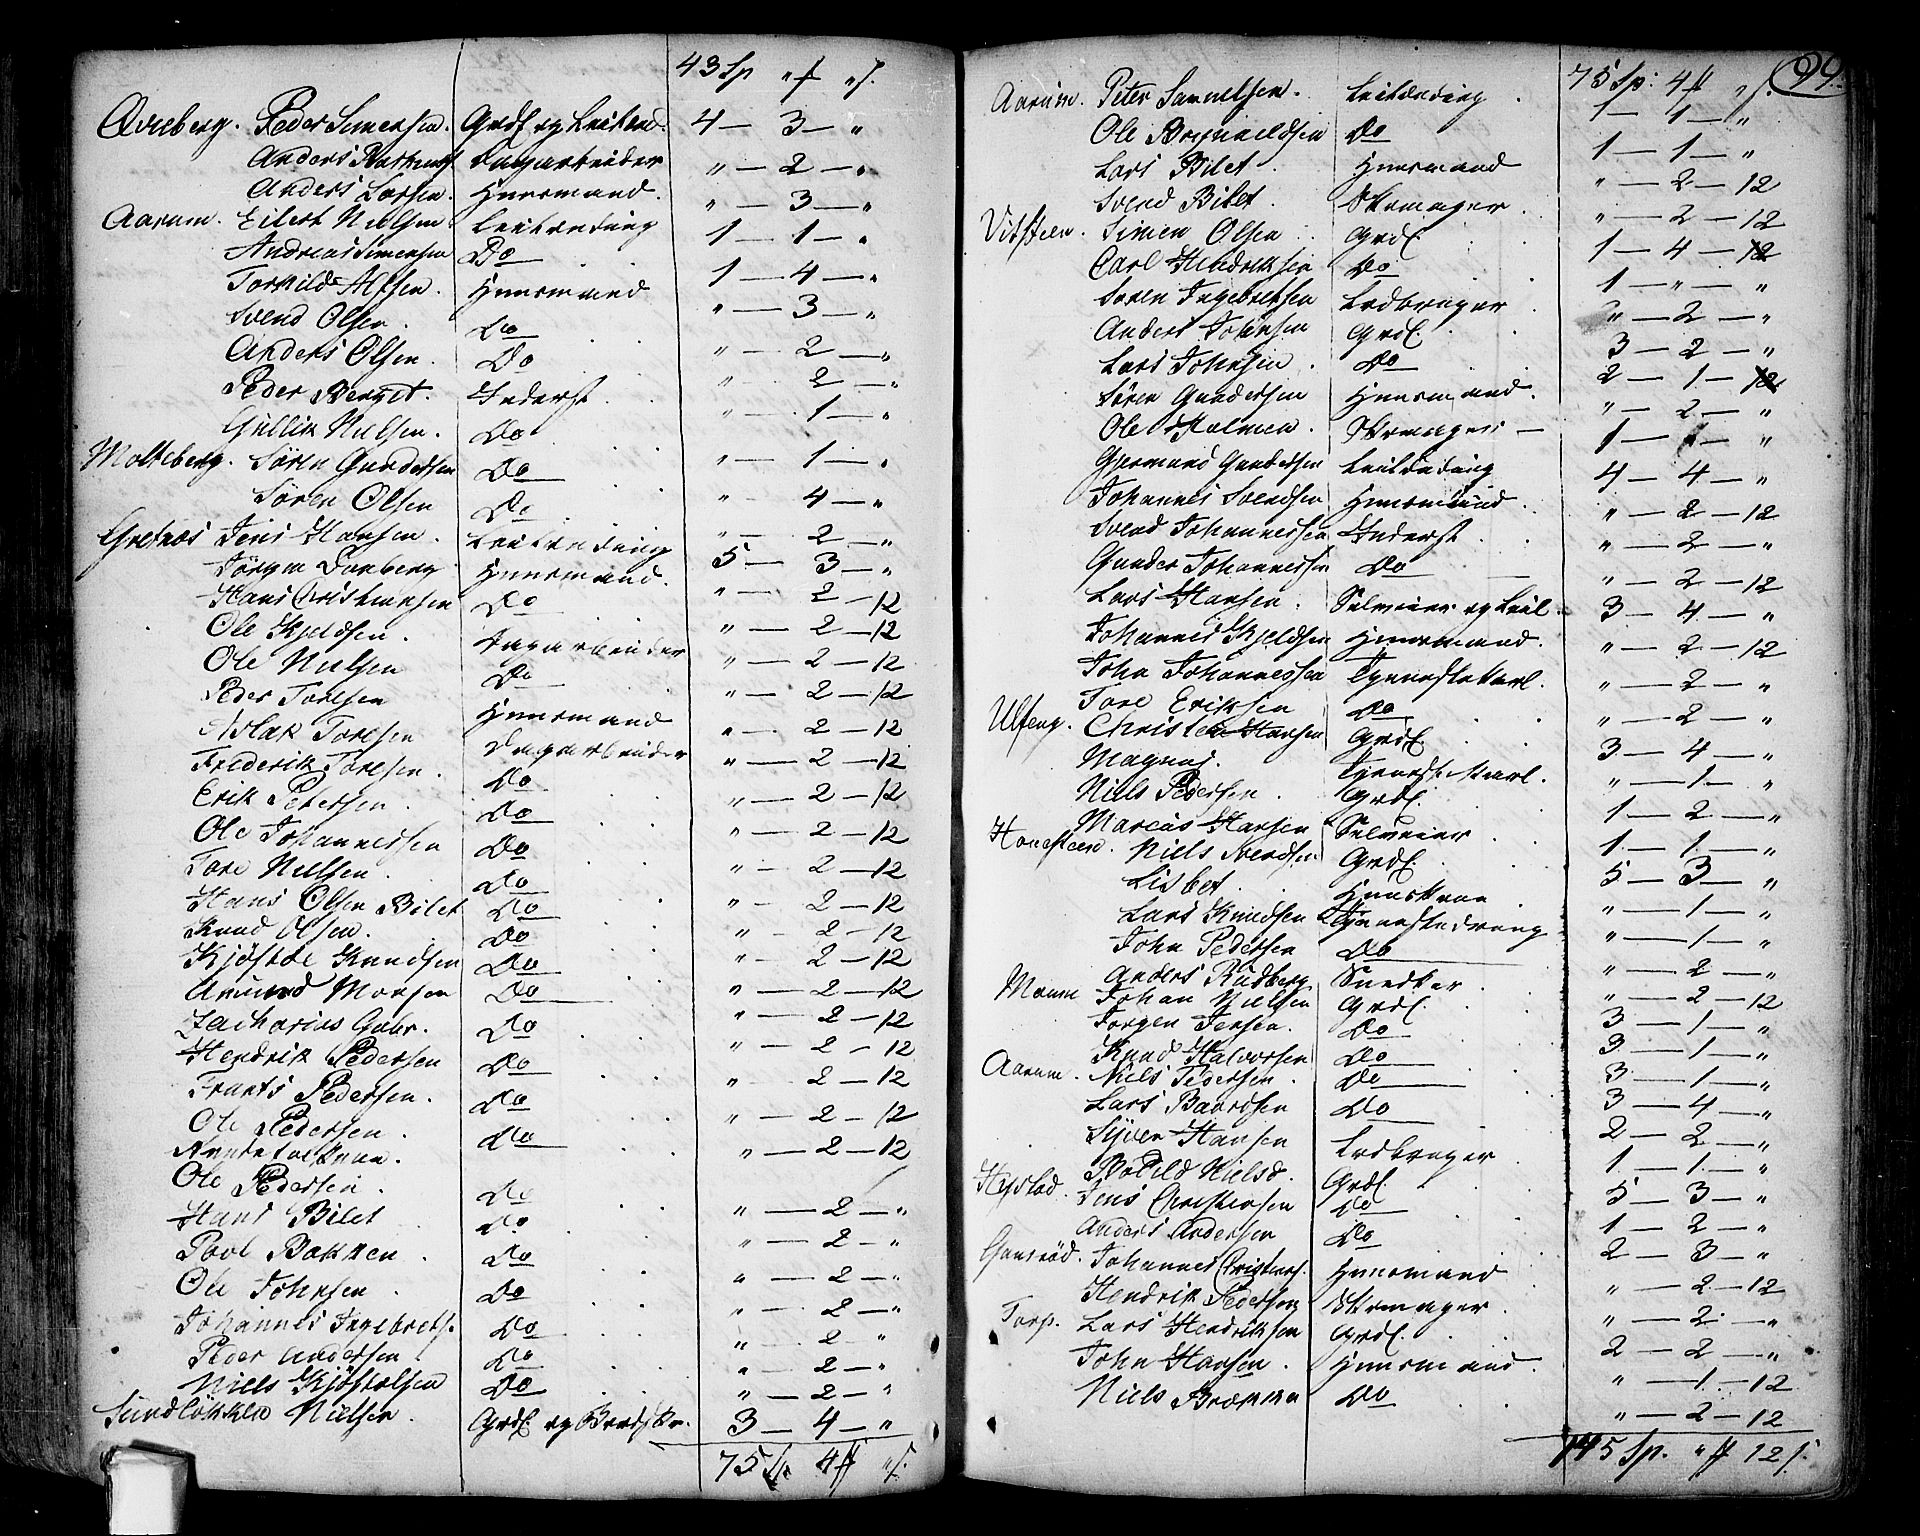 43 Sp „ f „ s.
Aareberg. Peder Simensen. Grdf og Leilænd. 4 — 3 — „
Anders Dagarbeider „ — 2 — „
Anders Larsen. Huusmand. „ — 3 — „
Aarum. Eilert Nielsen Leilænding 1 — 1 — „
Andreas Simensen Do 1 — 4 — „
Torkild Alfsen. Huusmand „ — 3 — „
Svend Olsen. Do „ — 2 — „
Anders Olsen. Do „ — 2 — „
Peder Berget. Inderst. „ — 1 — „
Gullik Nielsen. Do „ — 1 — „
Molteberg. Sören Gundersen Do „ — 4 — „
Sören Olsen Do „ — 2 — „
Grefnæs Jens Hansen. Leilænding 5 — 3 — „
Jörgen Huusmand. „ — 2 — 12
Hans Christiansen Do „ — 2 — 12
Ole Kjeldsen. Dagarbeider „ — 2 — 12
Ole Nielsen Do „ — 2 — 12
Peder Toresen Huusmand „ — 2 — 12
Aslak Toresen Dagarbeider „ — 2 — 12
Frederik Toresen. Do „ — 2 — 12
Erik Petersen. Do „ — 2 — 12
Ole Johannessen Do „ — 2 — 12
Tore Nielsen. Do „ — 2 — 12
Hans Olsen Bilet Do „ — 2 — 12
Knud Olsen. Do „ — 2 — 12
Kjöstol Knudsen Do „ — 2 — 12
Amund Monsen Do „ — 2 — 12
Zacharias Gabr. Do „ — 2 — 12
Hendrik Pedersen Do „ — 2 — 12
Frants Pedersen. Do „ — 2 — 12
Ole Pedersen. Do „ — 2 — 12
Ole Pedersen. Do „ — 2 — „
Hans Bilet Do „ — 2 — „
Povl Bakken. Do „ — 2 — „
Ole Johnsen. Do „ — 2 — „
Johannes Ingebrets. Do „ — 2 „
Peder Andersen Do „ — 2 — „
Niels Kjöstolsen Do „ — 2 — „
Sundlökken Nielsen. Grdf. og 3 — 4 — „
75 Sp. 4 f „ s.
99.
75 Sp: 4 f „ s.
Aarum. Peter Samuelsen. Leilænding. 1 — 4 — „
Ole Do 1 — 1 — „
Lars Bilet. Huusmand „ — 2 — 12
Svend Bilet. Skomager. „ — 2 — 12
Vitsteen. Simen Olsen Grdf. 1 — 4 — 12
Carl Hendriksen Do 1 — „ — „
Soren Ingebretsen Ledbruger „ — 2 — „
Anders Johnsen Grdf. 3 — 2 — „
Lars Johnsen. Do 2 — 1 — 12
Sören Gundersen Huusmand. „ — 2 — „
Ole Holmen. Skomager — 1 — — „
Gjermund Gundersen Leilænding 4 — 4 — „
Johannes Svendsen Huusmand „ — 2 — 12
Svend Johannessen Inderst. „ — 2 — „
Gunder Johannessen Do „ — 2 — 12
Lars Hansen. Selveier og Leil. 3 — 4 — „
Johannes Kjeldsen Huusmand. „ — 2 — 12
John Johannessen Tjenestekarl. „ — 2 — „
Tore Eriksen Do „ — 2 — „
Ulfeng. Christen Hansen Grdf. 3 — 4 — „
Magnus. Tjenestekarl. „ — 1 — „
Niels Pedersen. Grdf. 1 — 2 — „
Marcus Hansen Selveier 1 — 1 — „
Hanesteen. Niels Svendsen Grdf. 5 — 3 — „
Lisbet. Huuskone „ — 1 — „
Lars Knudsen Tjenestedreng „ — 1 — „
John Pedersen Do „ — 2 — „
Anders Rudberg Snedker. „ — 2 — 12
Moum Johan Nielsen Grdf. 3 — 1 — „
Jorgen Jensen. Do 3 — 1 — „
Knud Halvorsen Do 3 — 1 — „
Aarum. Niels Pedersen. Do 3 — 4 — „
Lars Baardsen Do 2 — 2 — „
Syver Hansen Ledbruger 1 — 1 — „
Hystad. Bothild Nielsd. Grdf. 5 — 3 — „
Jens Christensen Do 1 — 2 — „
Anders Andersen Do 2 — 3 — „
Gansröd. Johannes Christens. Huusmand „ — 2 — 12
Hendrik Pedersen Skomager. „ — 2 — „
Torp. Lars Hendriksen Grdf. 2 — 2 — „
John Hansen. Huusmand. „ — 1 — 12
Niels Brække Do „ — 2 — 12
145 Sp. „ f 12 s.